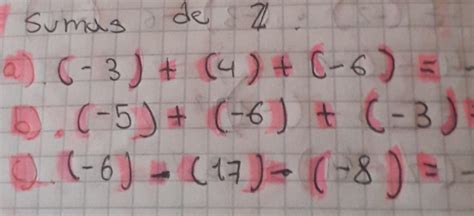 Sumas de ℤ.
a). (-3) + (4) + (-6) = -
b). (-5) + (-6) + (-3) =
c). (-6) - (17) - (-8) = -